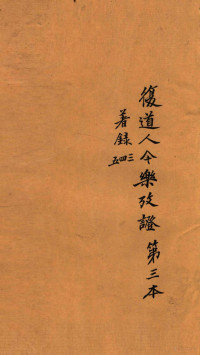 復道人今樂攷證 第三本
著録 三四五